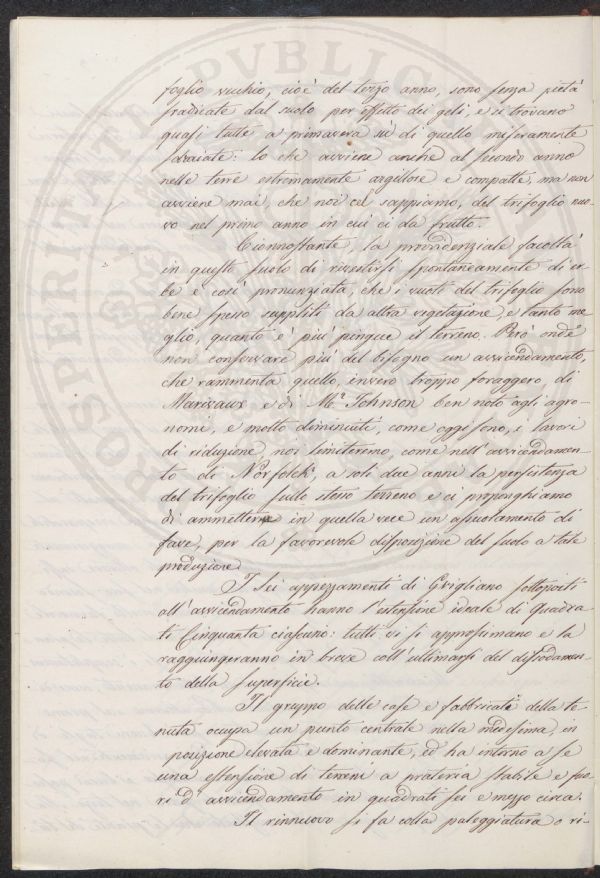 foglio vecchio, cioè del terzo anno, sono senza pietà
sradicate dal suolo per effetto dei geli, e si trovano
quasi tutte a primavera su di quello miseramente
sdraiate: lo che avviene anche al secondo anno
nelle terre estremamente argillose e compatte, ma non
avviene mai, che noi cel sappiamo, del trifoglio nuo-
vo nel primo anno in cui ci da frutto.
Cionnostante, la provvidenziale facoltà
in questo suolo di rivestirsi spontaneamente di er-
be è così pronunziata, che i vuoti del trifoglio sono
bene spesso suppliti da altra vegetazione, e tanto me-
glio, quanto è più pingue il terreno. Però onde
non conservare più del bisogno un avvicendamento,
che rammenta quello, invero troppo foraggero, di
Marivaux e di Mr. Johnson ben noto agli agro-
nomi, e molto diminuiti, come oggi sono, i lavori
di riduzione, noi limiteremo, come nell'avvicendamen-
to di Norfolck, a soli due anni la persistenza
del trifoglio sullo stesso terreno e ci proponghiamo
di ammettere in quella vece un assuolamento di
fave, per la favorevole disposizione del suolo a tale
produzione.
I sei appezzamenti di Evigliano sottoposti
all'avvicendamento hanno l'estensione ideale di Quadra-
ti Cinquanta ciascuno: tutti vi si approssimano e la
raggiungeranno in breve coll'ultimarsi del dissodamen-
to della superficie.
Il gruppo delle case e fabbricati della te-
nuta occupa un punto centrale nella medesima, in
posizione elevata e dominante, ed ha intorno a se
una estensione di terreni a prateria stabile e fuo-
ri d'avvicendamento in quadrati sei e mezzo circa.
Il rinnuovo si fa colla paleggiatura o ri-
PROSPERITATI PVBLICAE